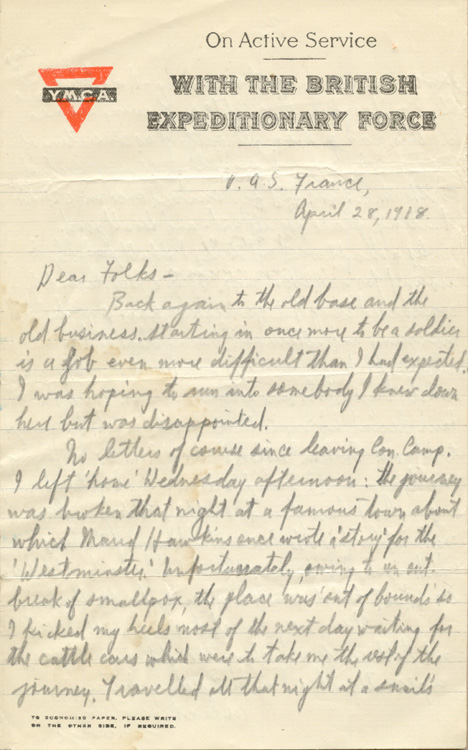 On Active Service
Y.M.C.A.
WITH THE BRITISH
EXPEDITIONARY FORCE
France,
April 28, 1918.
Dear Folks –
Back again to the old base and the
old business. Starting in once more to be a soldier
is a job even more difficult than I had expected.
I was hoping to run into somebody I knew down
here but was disappointed.
No letters of course since leaving Con. Camp.
I left 'home' Wednesday afternoon: the journey
was broken that night at a famous town about
which Maud Hawkins once wrote a 'story' for the
'Westminster.' Unfortunately, owing to an out-
break of smallpox, the place was 'out of bounds' so
I kicked my heels most of the next day waiting for
the cattle cars which were to take me the rest of the
journey. Travelled all that night at a snail's
TO ECONOMISE PAPER, PLEASE WRITE
ON THE OTHER SIDE, IF REQUIRED.